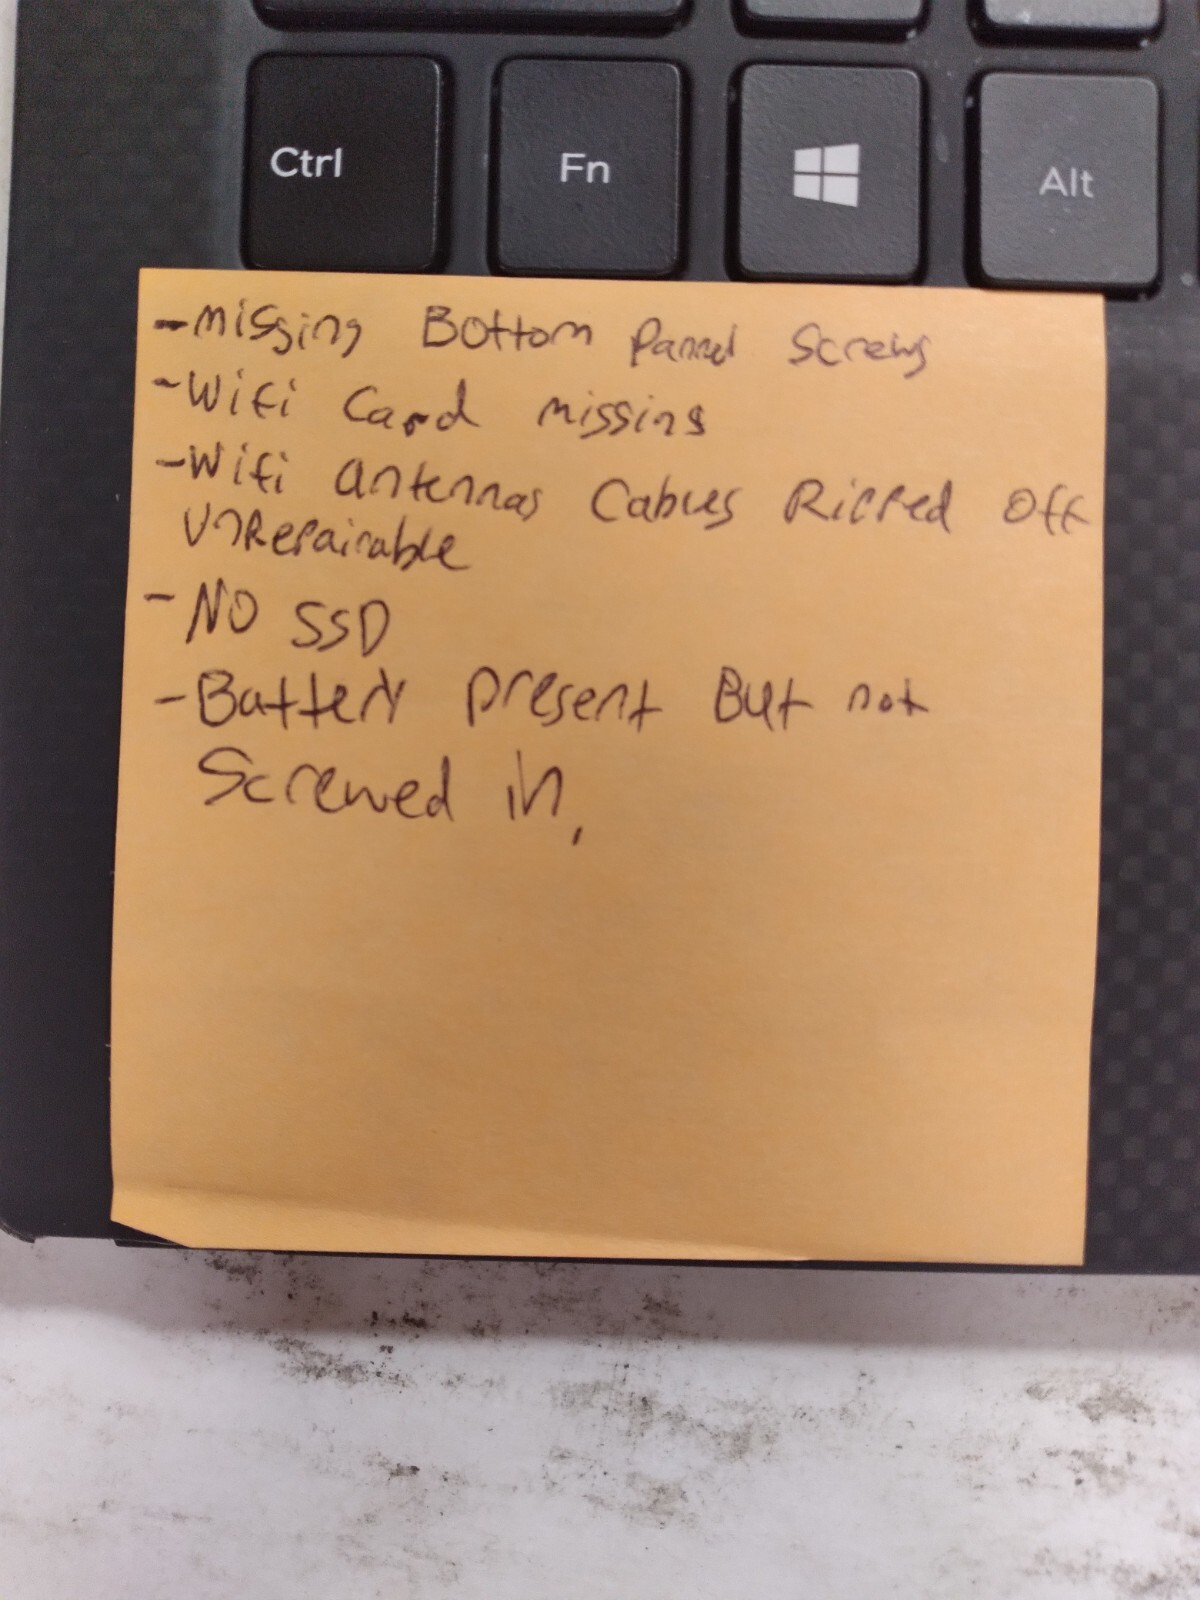 Ctrl Fn Alt
- missing Bottom Pannel Screws
- Wifi Card missing
- Wifi antennas Cables Ripped Off
UnRepairable
- NO SSD
- Battery Present But not
Screwed in.